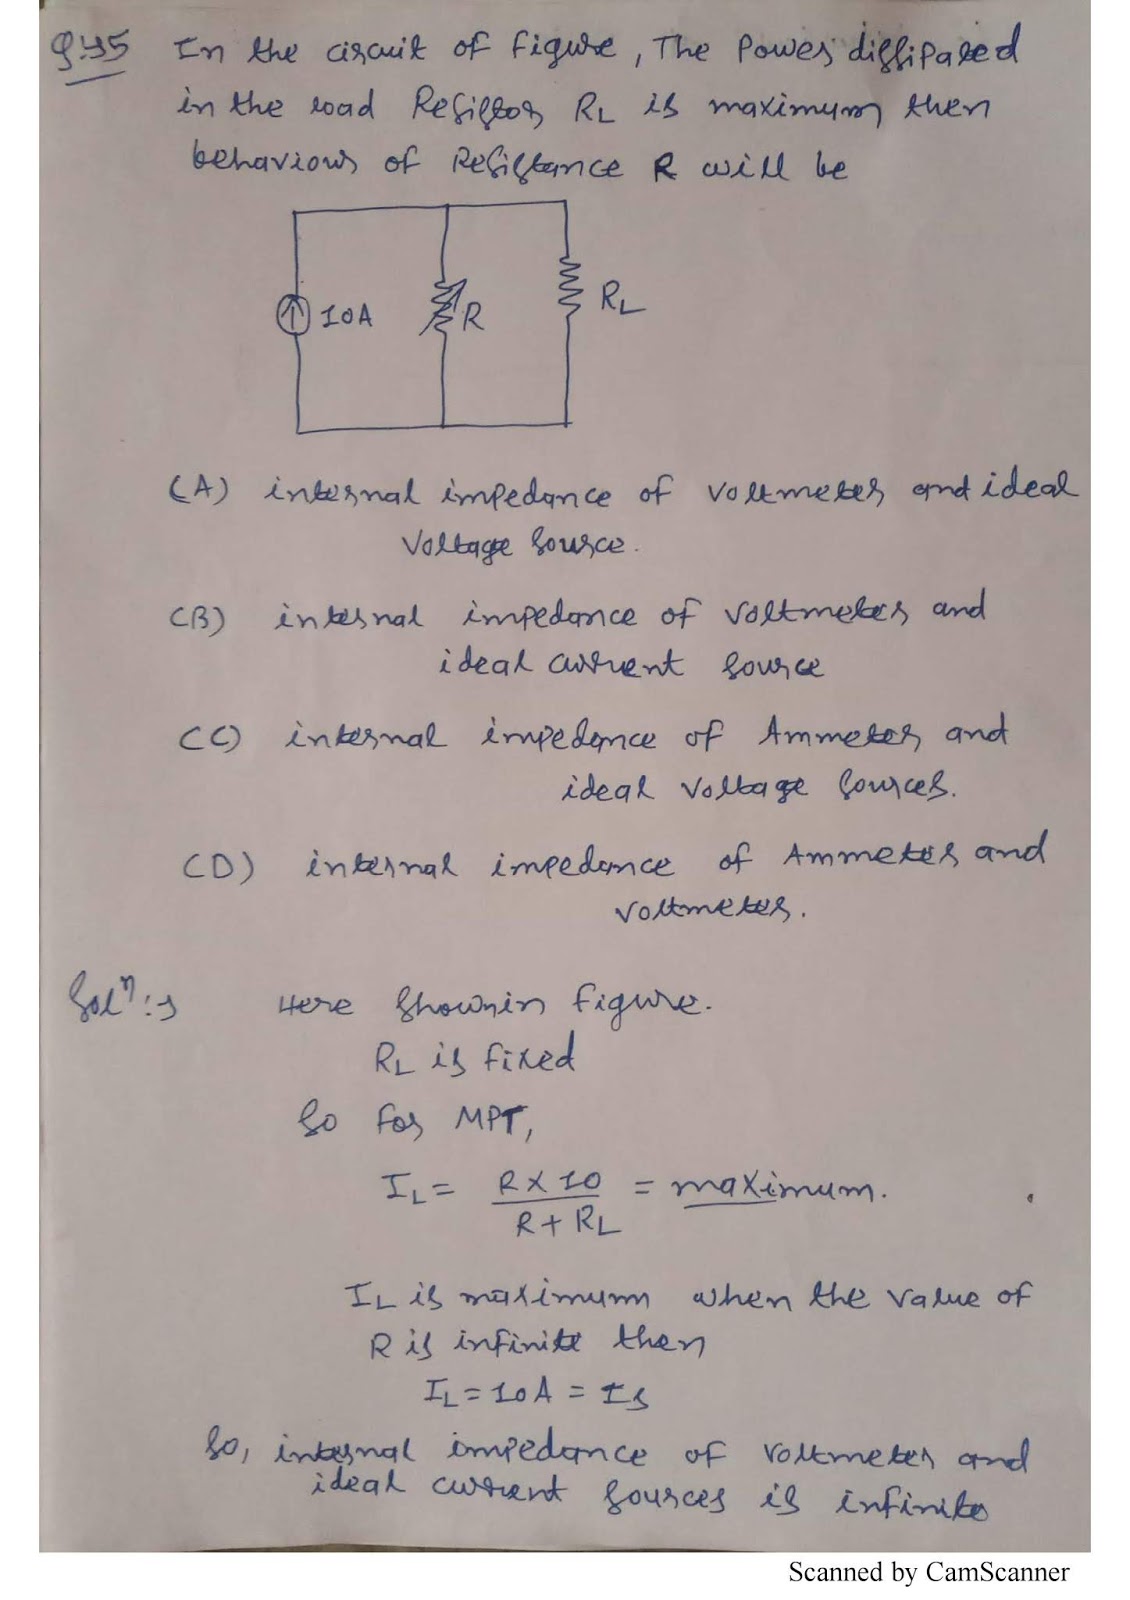 Q.45 In the circuit of figure, The Power dissipated
in the load Resistor RL is maximum then
behaviour of Resistance R will be
10A R RL
(A) internal impedance of voltmeter and ideal
Voltage source.
(B) internal impedance of voltmeter and
ideal current source
(C) internal impedance of Ammeter and
ideal voltage sources.
(D) internal impedance of Ammeter and
voltmeter.
Solⁿ:→ Here shown in figure.
RL is fixed
So for MPT,
IL = R×10 / R+RL = maximum.
IL is maximum when the value of
R is infinite then
IL = 10A = Is
So, internal impedance of voltmeter and
ideal current sources is infinite
Scanned by CamScanner